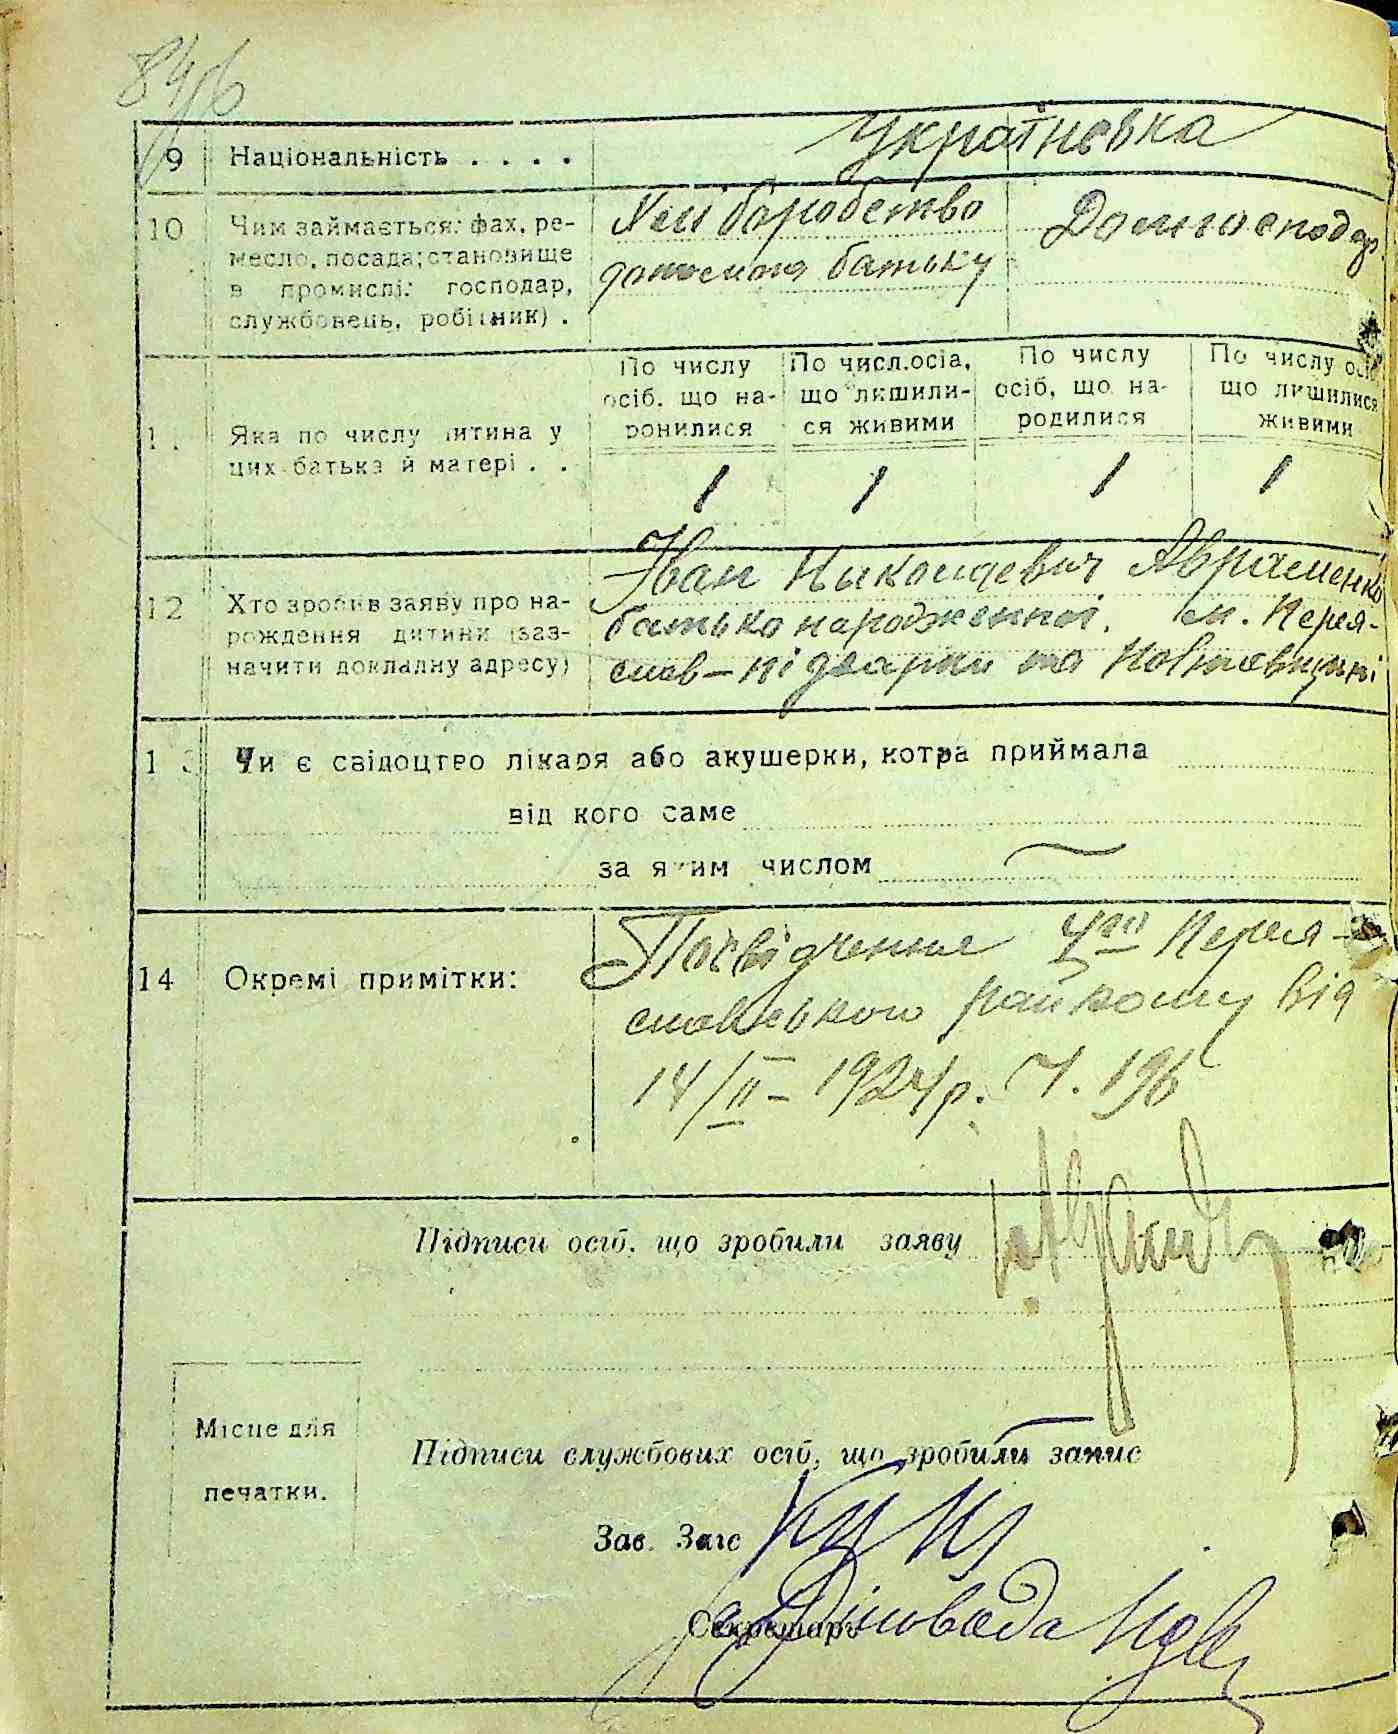 84/6
9 Національність . . . . Українська
10 Чим займається: фах, ре-
месло, посада; становище
в промислі: господар,
службовець, робітник) .
Хліборобство
допомога батьку
Домогосподар.
По числу
осіб. що на-
родилися
По числ.осіа,
що лишили-
ся живими
По числу
осіб, що на-
родилися
По числу осіб
що лишилися
живими
Яка по числу дитина у
цих батька й матері . .
1 1 1 1
12 Хто зробив заяву про на-
рождення дитини (заз-
начити докладну адресу)
Іван Никонович Авраменко
батько народженної. м. Перея-
слав – підварки та
13 Чи є свідоцтво лікаря або акушерки, котра приймала
від кого саме
за яким числом
14 Окремі примітки:
Посвідчення Перея-
славського райкому від
14/II – 1924 р. Ч. 196
Підписи осіб, що зробили заяву
Місце для
печатки.
Підписи службових осіб, що зробили запис
Зав. Загс
Секретарь